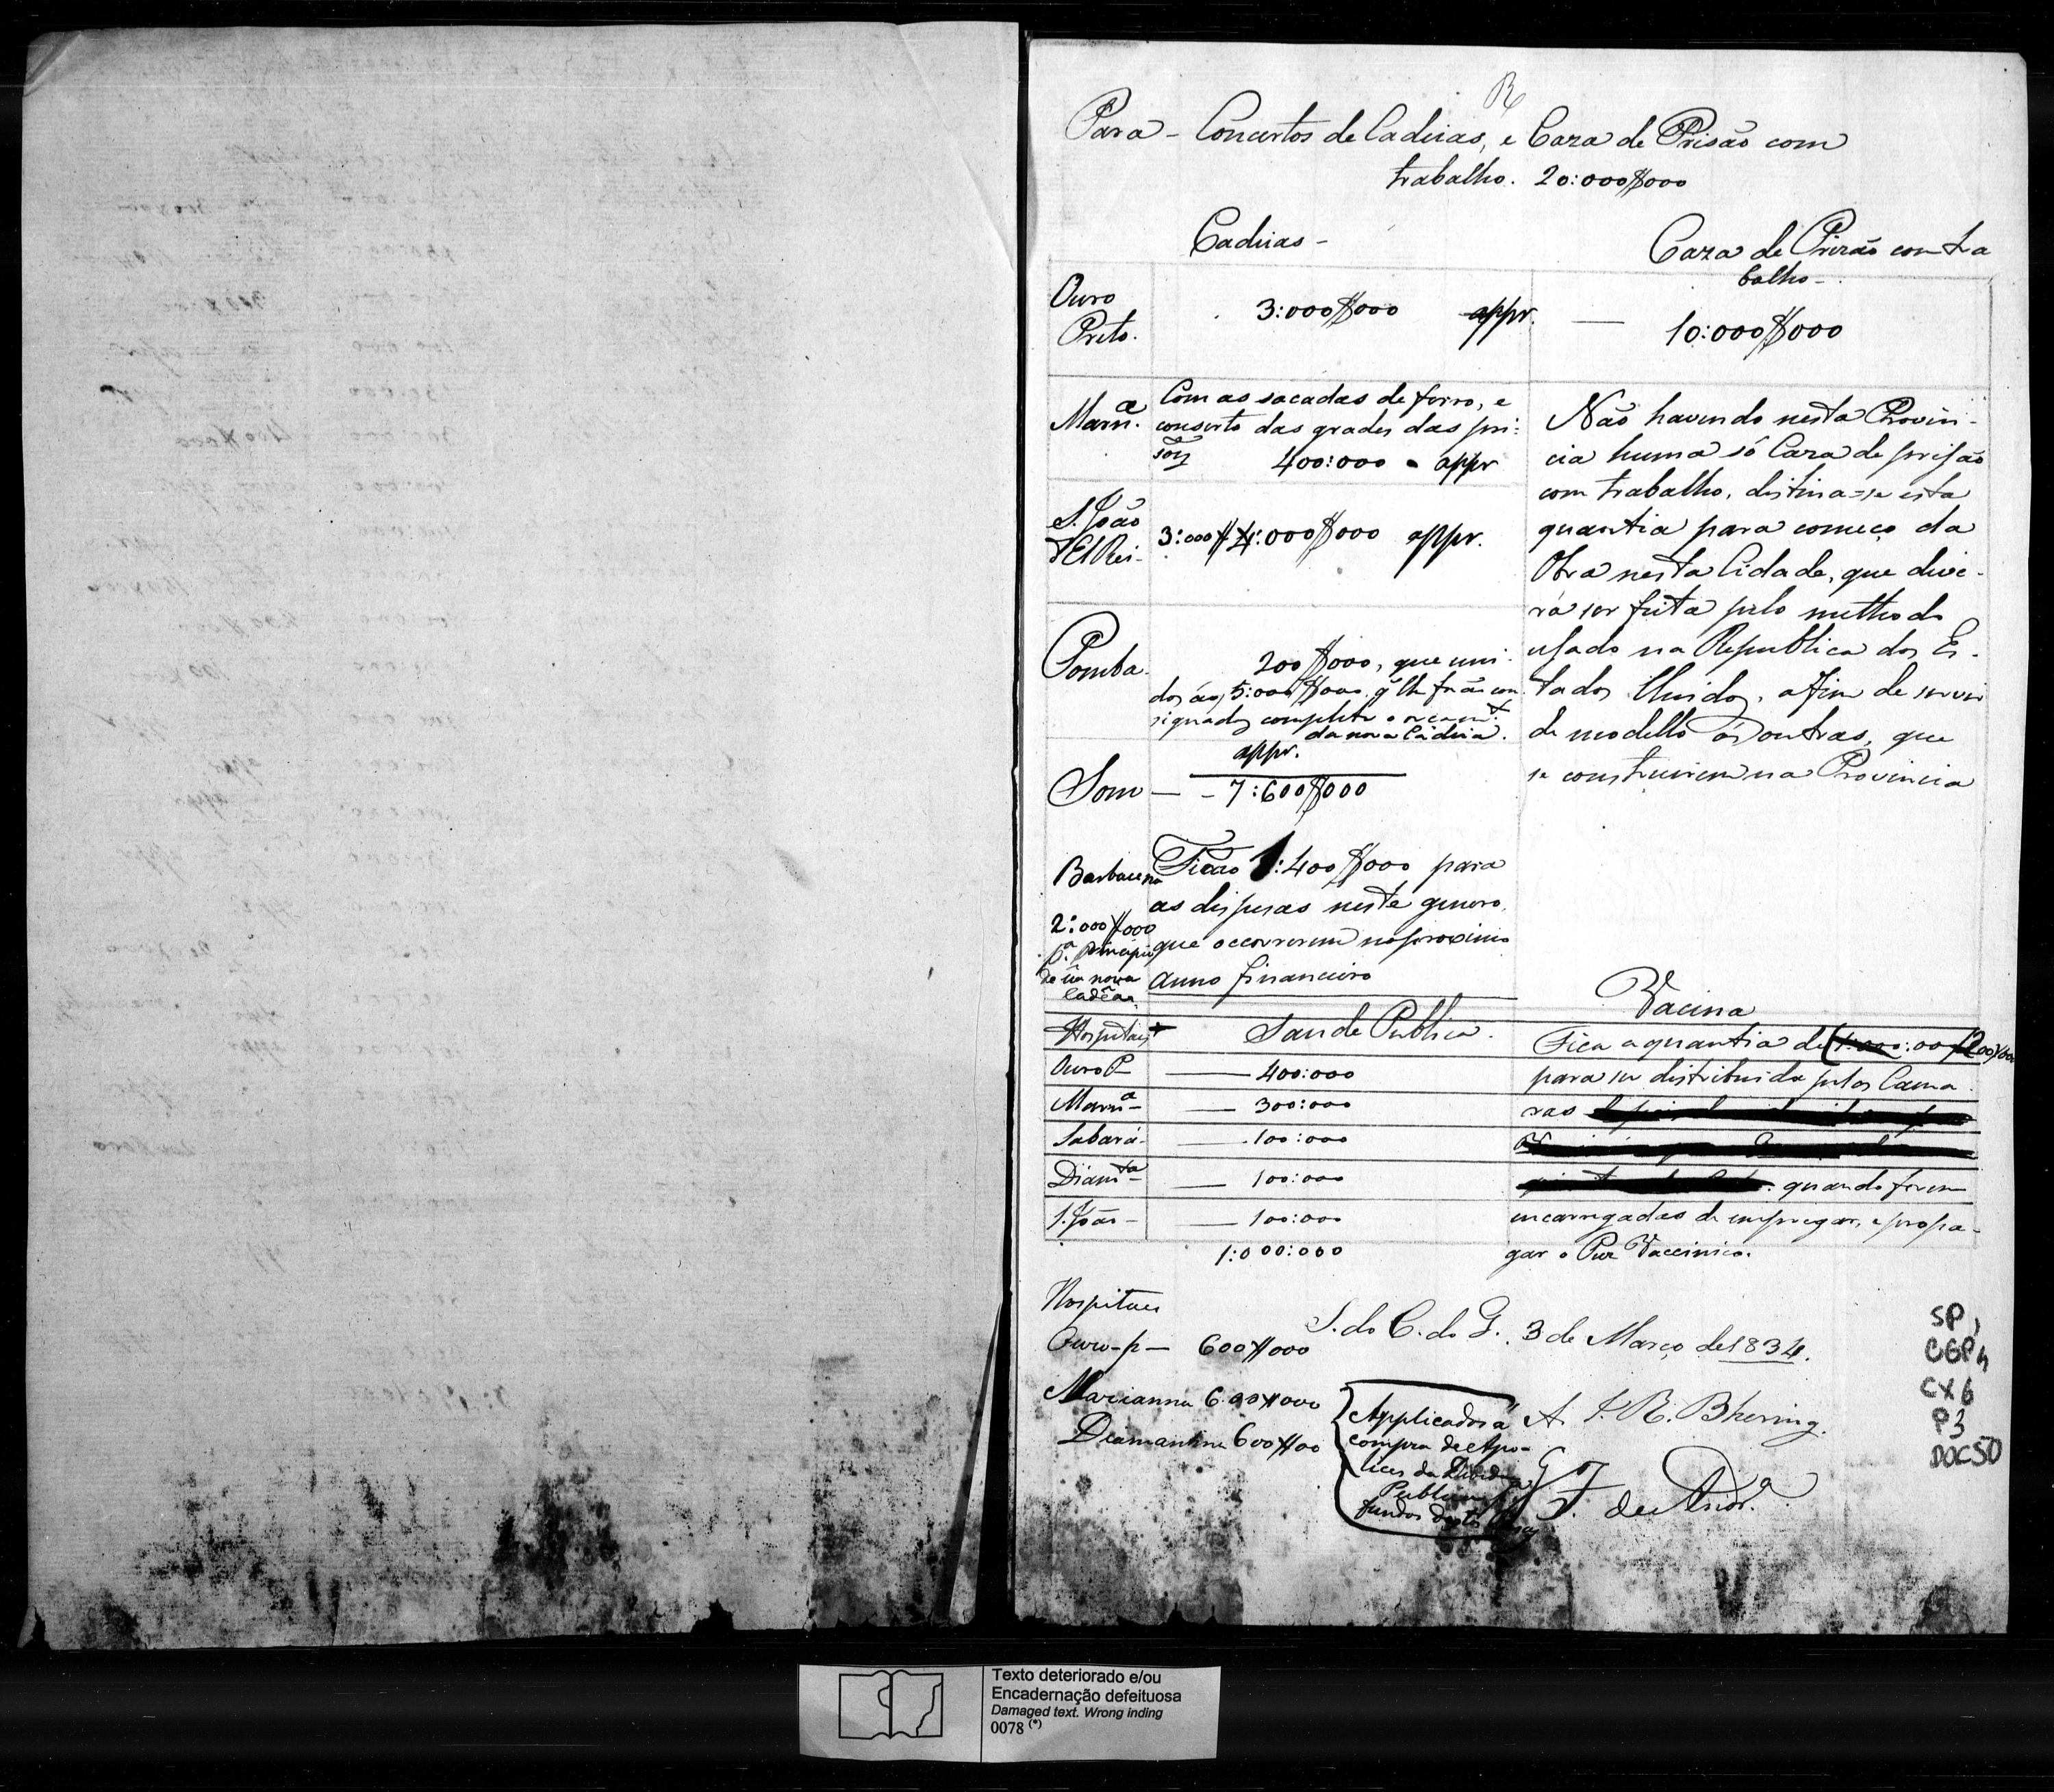 R
Para - Concertos de Cadeias, e Caza de Prisão com
trabalho. 20:000$000
Cadeias -
Caza de Prizão com tra
balho -
Ouro
Preto.
3:000$000 appr. — 10:000$000
Marn.ª
Com as sacadas de ferro, e
conserto das grades das pri:
soẽs 400:000 - appr
S. João
d'El Rei -
3:000$ 4:000$000 appr.
Pomba.
200$000, que uni-
dos aos 5:000$000 q̃ lhe forão con
signados completa o orcam.to
da nova Cadeia.
appr.
Som — - 7:600$000
Não havendo nesta Provin-
cia huma só Caza de prisão
com trabalho, distina-se esta
quantia para começo da
Obra nesta Cidade, que deve-
rá ser feita pelo methodo
usado na Republica dos Es-
tados Unidos, afim de servir
de modello ás outras, que
se construirem na Provincia
Barbacena
2:000$000
p.ª principio
de ũa nova
Cadêa
Ficão 1:400$000 para
as despesas neste genero,
que occorrerem no proximo
anno financeiro
Vacina
Hospitaes
Saude Publica.
Ouro P — 400:000
Marn.ª — 300:000
Sabará - — 100:000
Diam.ta — 100:000
S. João - — 100:000
1:000:000
Fica a quantia de 200$000
para ser distribuida pelas Cama
ras
quando forem
encarregadas de empregar, e propa-
gar o Puz Vaccinico.
Hospitaes
Ouro-p — 600$000
Marianna 600$000
Diamantina 600$000
S. do C. do G. 3 de Março de 1834.
Applicados á
compra de Apo-
lices da Divida
Publica
fundos destas
A. J. R. Bhering.
J. F. de Andr.ª
SP,
CGP4
CX6
P3
DOC50
Texto deteriorado e/ou
Encadernação defeituosa
Damaged text. Wrong inding
0078 (*)